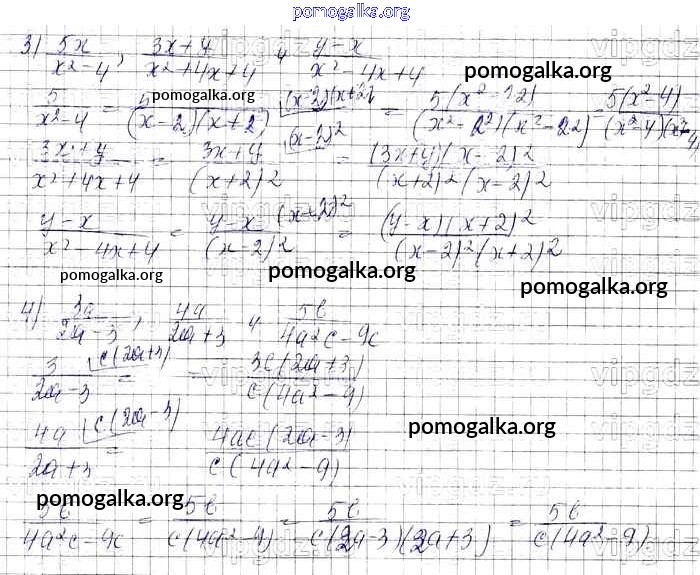 pomogalka.org
3) 5x/(x²-4), (3x+4)/(x²+4x+4) и (y-x)/(x²-4x+4)
pomogalka.org pomogalka.org
5/(x²-4) = 5/((x-2)(x+2)) (x-2)(x+2)/(x-2)² = 5(x²-12)/((x²-2²)(x²-22)) 5(x²-4)/((x²-4)(x²-4))
(3x+4)/(x²+4x+4) = (3x+y)/(x+2)² = (3x+y)(x-2)²/((x+2)²(x-2)²)
(y-x)/(x²-4x+4) = (y-x)/(x-2)² (x+2)² = (y-x)(x+2)²/((x-2)²(x+2)²)
pomogalka.org pomogalka.org pomogalka.org
4) 3a/(2a-3), 4a/(2a+3) и 5b/(4a²c-9c)
3/(2a-3) c(2a+3) = = 3c(2a+3)/(c(4a²-9))
4a/(2a+3) c(2a-3) = 4ac(2a-3)/(c(4a²-9))
pomogalka.org
pomogalka.org
5b/(4a²c-9c) = 5b/(c(4a²-9)) = 5b/(c(2a-3)(2a+3)) = 5b/(c(4a²-9))